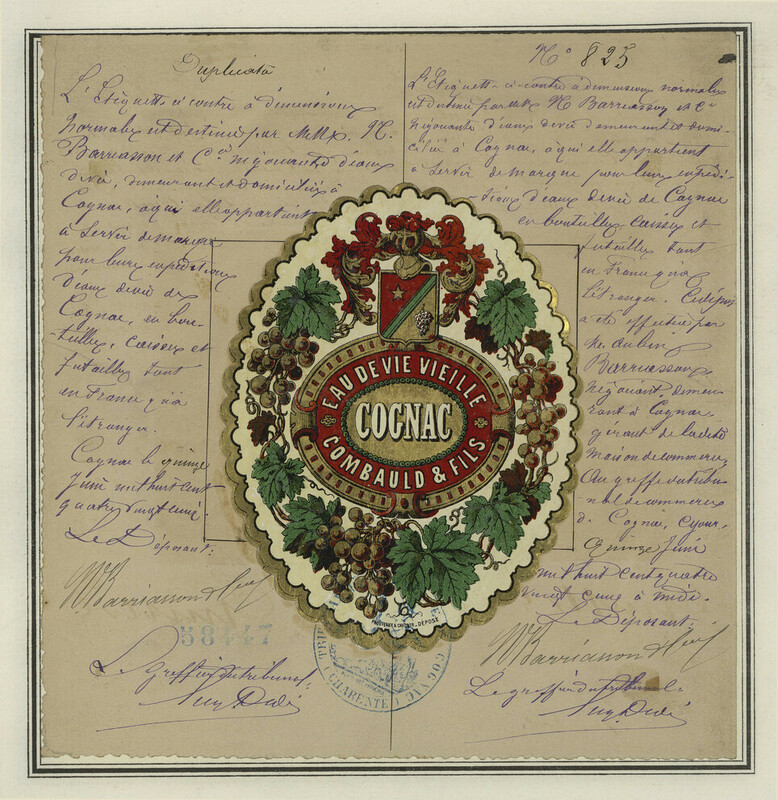 Duplicata
L'Etiquette ci contre à dimensions
normales est destinée par MMrs. N.
Barriasson et Cie négociants d'eaux
de vie, demeurant et domiciliés à
Cognac, à qui elle appartient
à servir de marque
pour leurs expéditions
d'eaux de vie de
Cognac, en bou-
teilles, caisses et
futailles tant
en France qu'à
l'étranger.
Cognac le quinze
Juin mil huit cent
quatre vingt cinq.
Le Déposant:
N. Barriasson &
58447
Le greffier du tribunal:
No 825
L'Etiquette ci-contre à dimensions normales
est destinée par MM. N. Barriasson et Cie
négociants d'eaux de vie demeurant et domi-
ciliés à Cognac, à qui elle appartient
à servir de marque pour leurs expédi-
tions d'eaux de vie de Cognac
en bouteilles, caisses et
futailles tant
en France qu'à
l'étranger. Ce dépôt
a été effectué par
Mr. Aubin
Barriasson
négociant, demeu-
rant à Cognac,
gérant de la dite
maison de commerce,
Au greffe du tribu-
nal de commerce
de Cognac, ce jour,
quinze Juin
mil huit cent quatre
vingt cinq à midi.
Le Déposant:
N. Barriasson &
Le greffier du tribunal:
EAU DE VIE VIEILLE
COGNAC
COMBAULD & FILS
DÉPOSÉ
COGNAC
CHARENTE